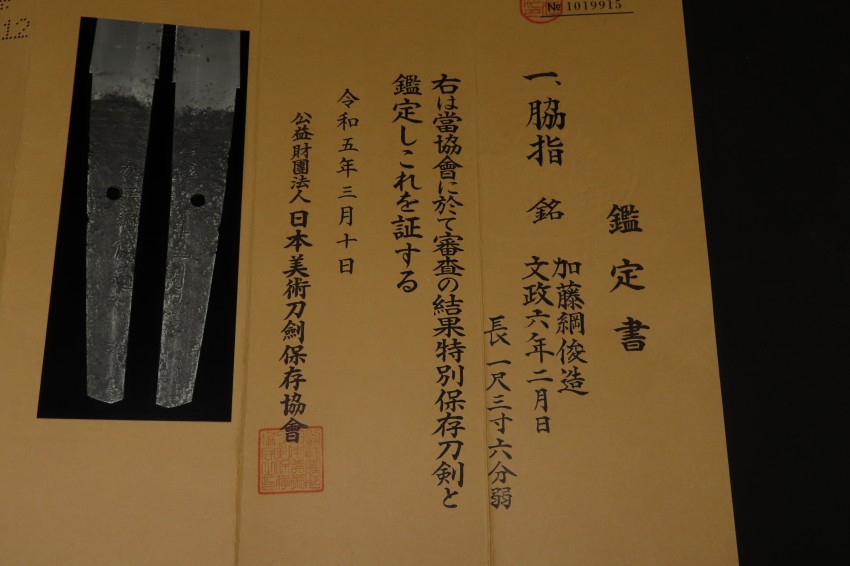 № 1019915
鑑定書
一、脇指 銘 加藤綱俊造
文政六年二月日
長 一尺三寸六分弱
右は當協會に於て審査の結果特別保存刀剣と
鑑定しこれを証する
令和五年三月十日
公益財團法人 日本美術刀劍保存協會
12